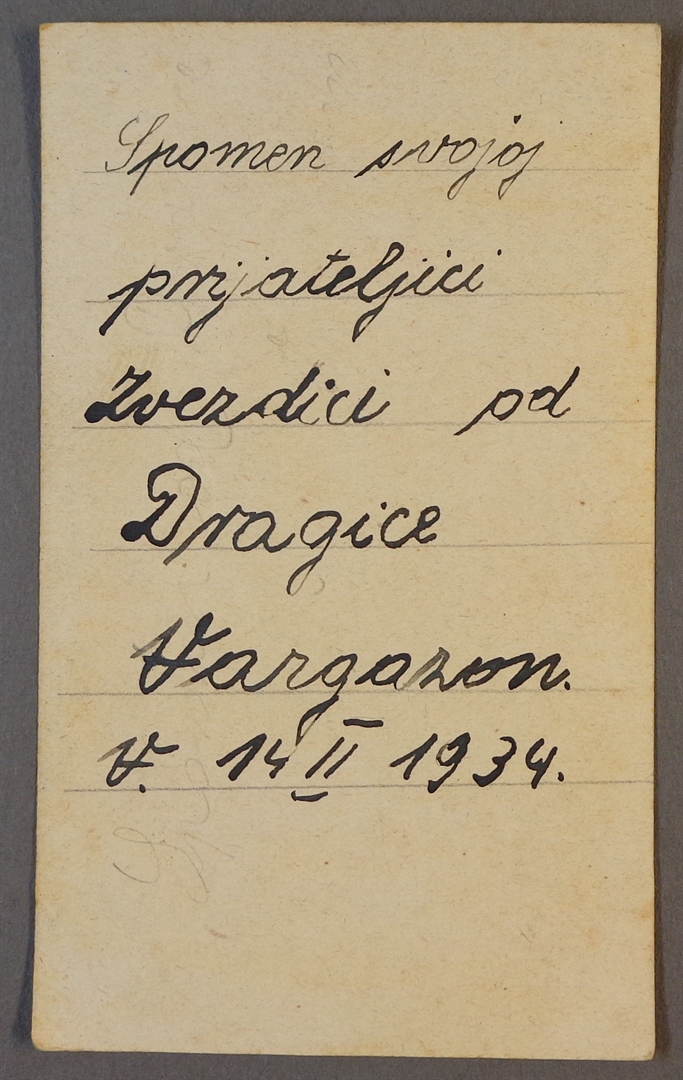 Spomen svojoj
prijateljici
Zvezdici od
Dragice
Vargazon.
V. 14 II 1934.